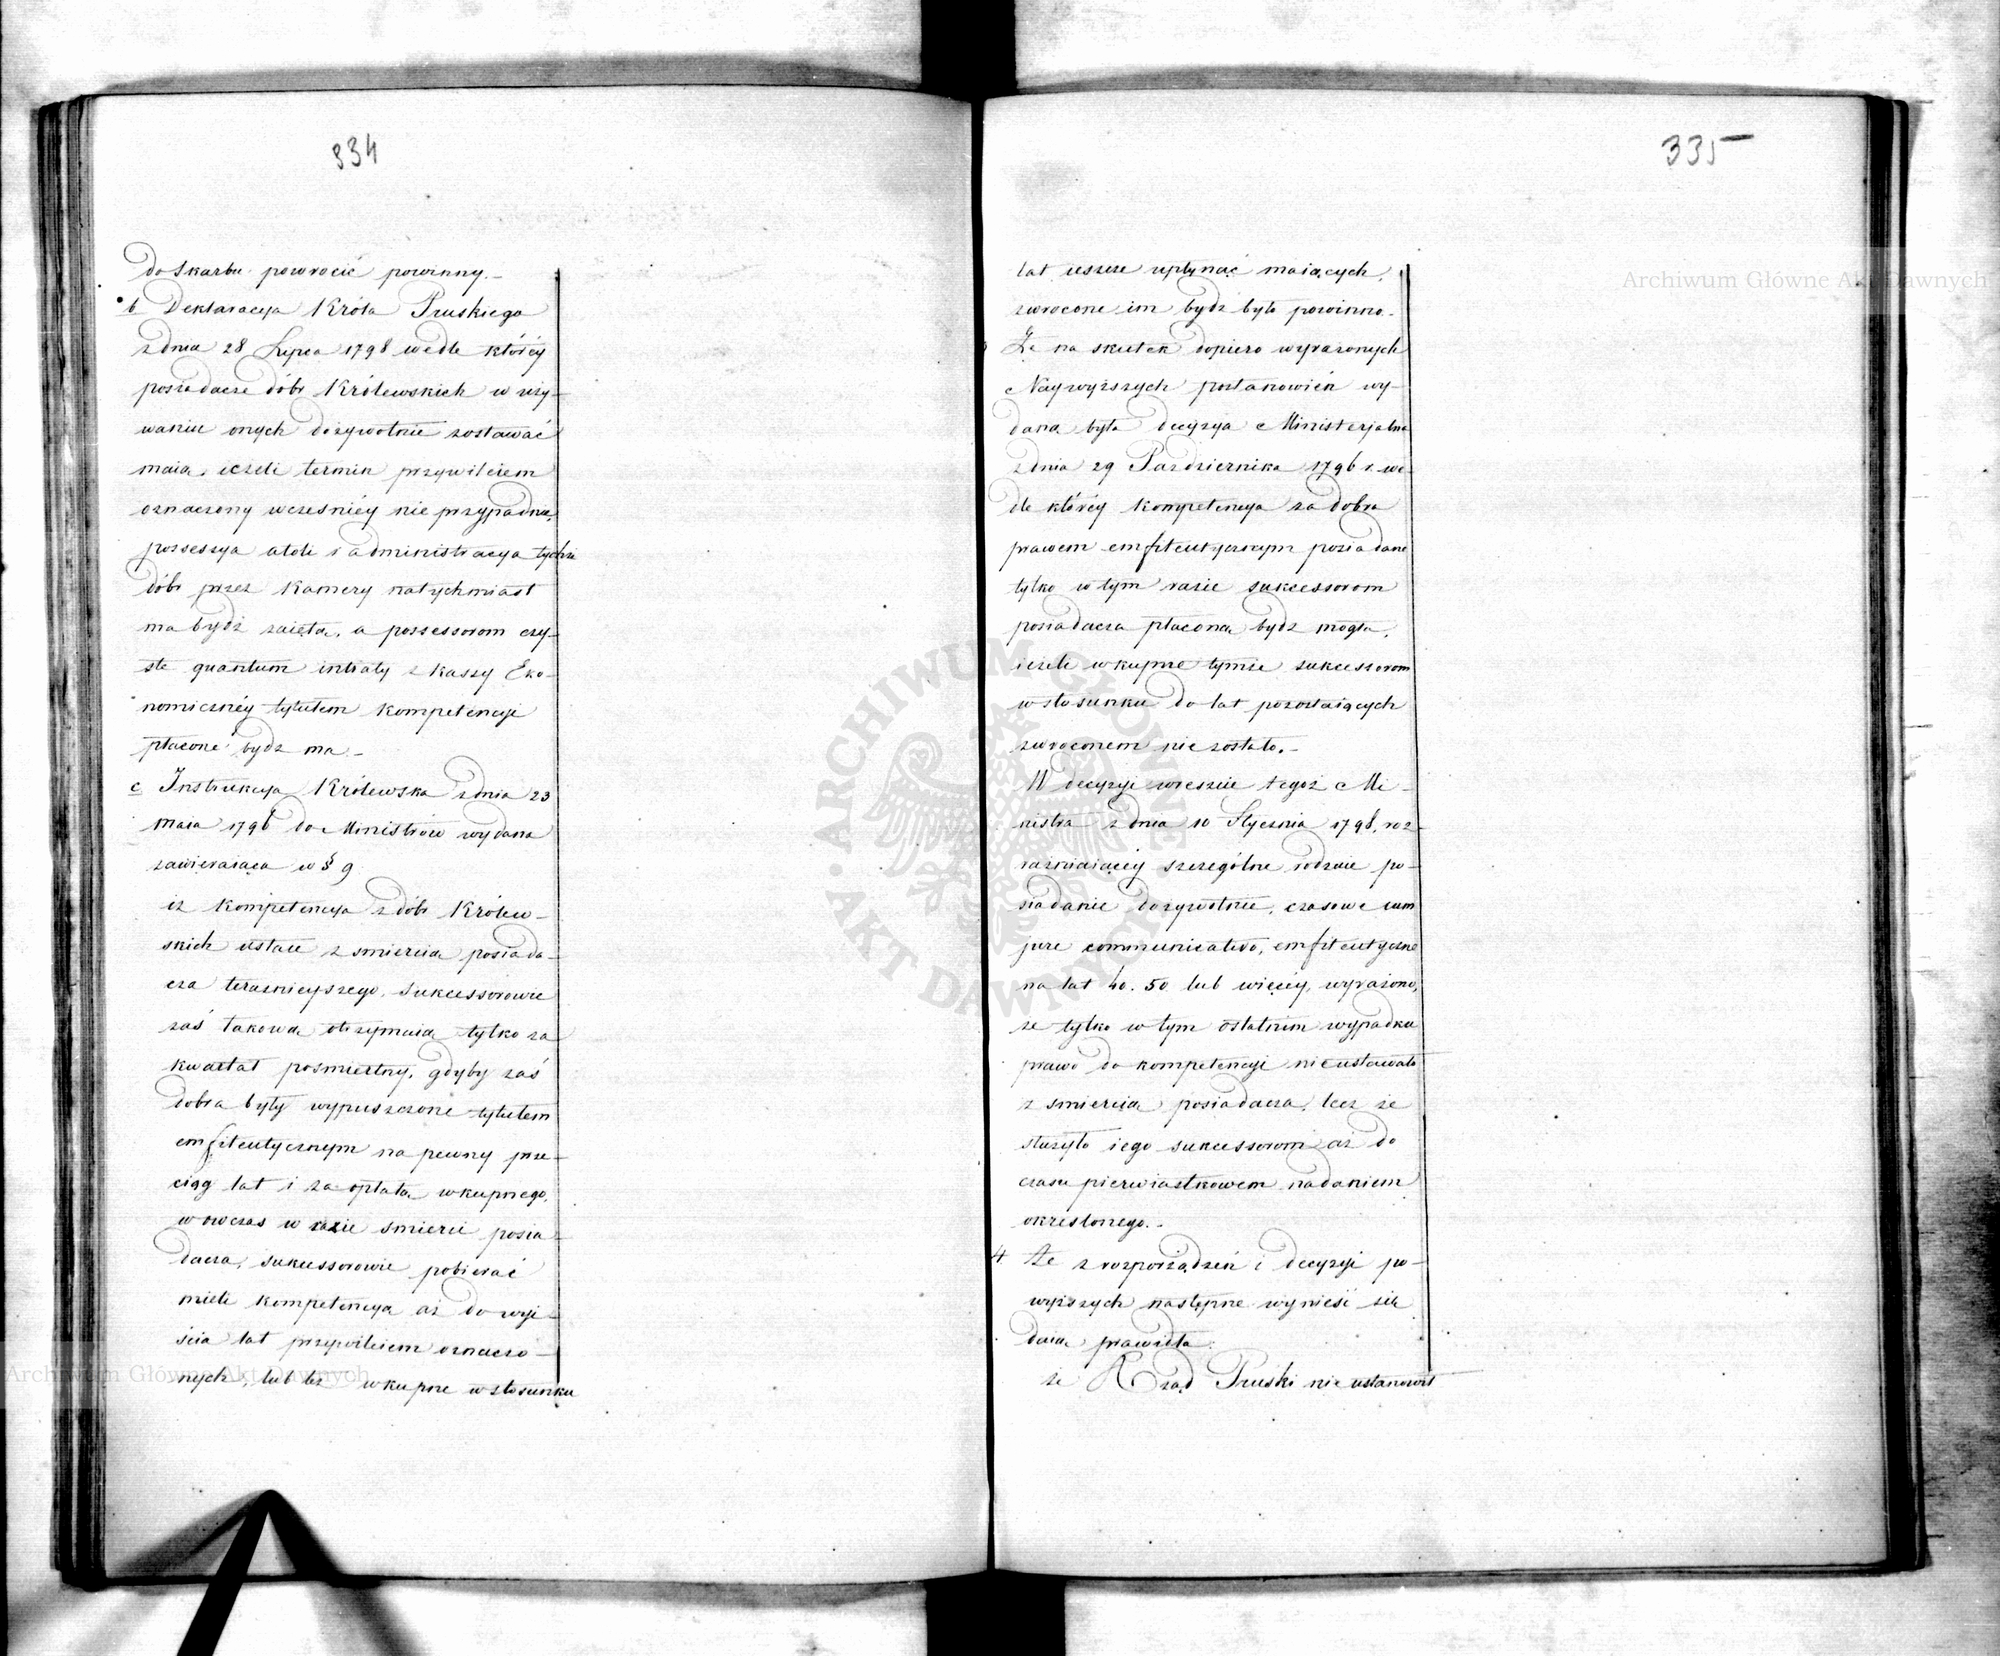 334
do Skarbu powrocić powinny.–
b Deklaracya Króla Pruskiego
z dnia 28 Lipca 1798 wedle któréy
posiadacze dóbr Królewskich w uży-
waniu onych dożywotnie zostawać
maią, ieżeli termin przywileiem
oznaczony wcześniéy nie przypadnie,
possessya atoli i administracya tychże
dóbr przez Kamery natychmiast
ma bydź zaięta, a possessorom czy-
ste quantum intraty z kassy Eko-
nomicznéy tytułem kompetencyi
płacone bydź ma.–
c Instrukcya Królewska z dnia 23
Maia 1796 do Ministrów wydana
zawieraiąca w § 9
iż kompetencya z dóbr Królew-
skich ustaie z śmiercią posiada-
cza teraźnieyszego, Sukcessorowie
zaś takową otrzymaią tylko za
kwartał pośmiertny, gdyby zaś
dobra były wypuszczone tytułem
emfiteutycznym na pewny prze-
ciąg lat i za opłatą wkupnego,
wowczas w razie śmierci posia-
dacza, sukcessorowie pobierać
mieli kompetencyą aż do wyi-
ścia lat przywileiem oznaczo-
nych, lub też wkupne w stosunku
335
lat ieszcze upłynąć maiących,
zwrocone im bydź było powinno.–
Że na skutek dopiero wyrażonych
Naywyższych postanowień wy-
daną była decyzya Ministerjalna
z dnia 29 Października 1796 r. we-
dle któréy kompetencya za dobra
prawem emfiteutycznym posiadane
tylko w tym razie sukcessorom
posiadacza płaconą bydź mogła,
ieżeli wkupne tymże sukcessorom
w stosunku do lat pozostaiących
zwroconem nie zostało.–
W decyzyi wreszcie tegoż Mi-
nistra z dnia 10 Stycznia 1798, roz-
rożniaiącéy szczególne rodzaie po-
siadanie dożywotnie, czasowe cum
jure communicativo, emfiteutyczne
na lat 40. 50 lub więcéy, wyrażono,
że tylko w tym ostatnim wypadku
prawo do kompetencyi nie ustawało
z śmiercią posiadacza, lecz że
służyło iego sukcessorom aż do
czasu pierwiastkowem nadaniem
określonego.–
4 Że z rozporządzeń i decyzyi po-
wyższych następne wynieść się
daią prawidła:
że Rząd Pruski nie ustanowił
Archiwum Główne Akt Dawnych
Archiwum Główne Akt Dawnych
ARCHIWUM GŁÓWNE AKT DAWNYCH